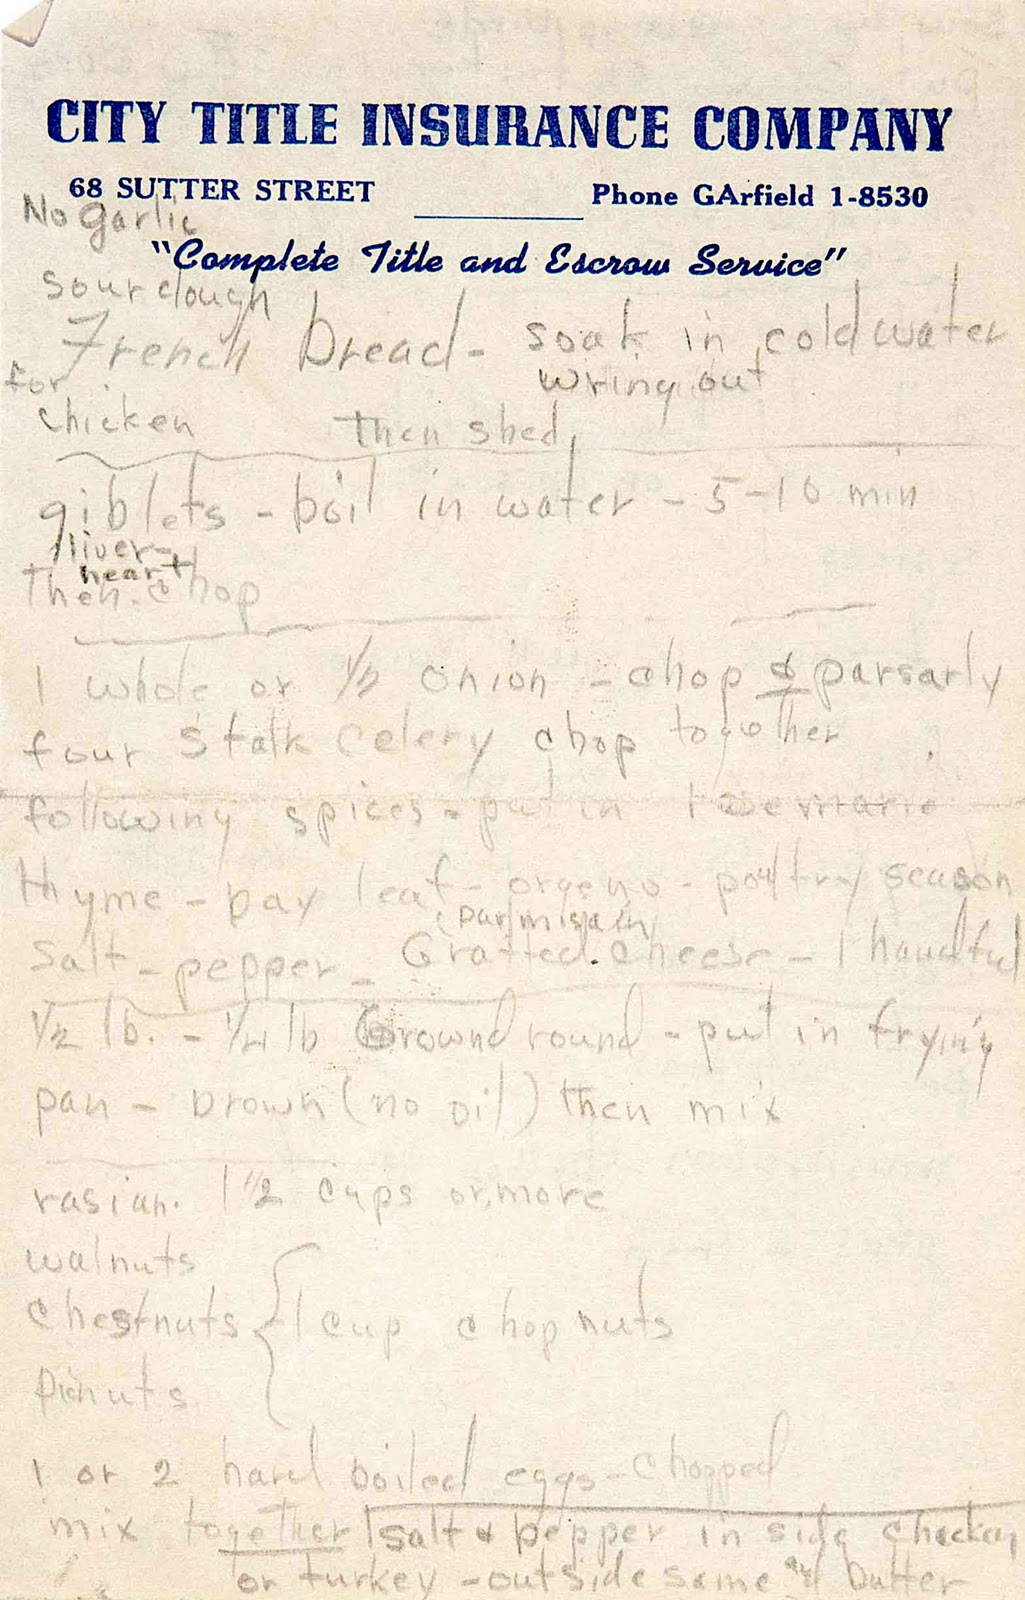 CITY TITLE INSURANCE COMPANY
68 SUTTER STREET Phone GArfield 1-8530
No garlic
"Complete Title and Escrow Service"
sour dough
French bread - soak in cold water
for wring out
chicken then shed
giblets - boil in water - 5-10 min
liver -
heart
then chop
1 whole or 1/2 onion - chop & parsarly
four stalk celery chop together
following spices - put in rosemarie
thyme - bay leaf - orgeno - poultry season
(parmisain)
salt - pepper - Gratted cheese - 1 handful
1/2 lb. - 1/4 lb Ground round - put in frying
pan - brown (no oil) then mix
rasian. 1 1/2 cups or more
walnuts
chestnuts { 1 cup chop nuts
pinuts
1 or 2 hard boiled eggs - chopped
mix together salt & pepper in side chicken
or turkey - outside same and butter